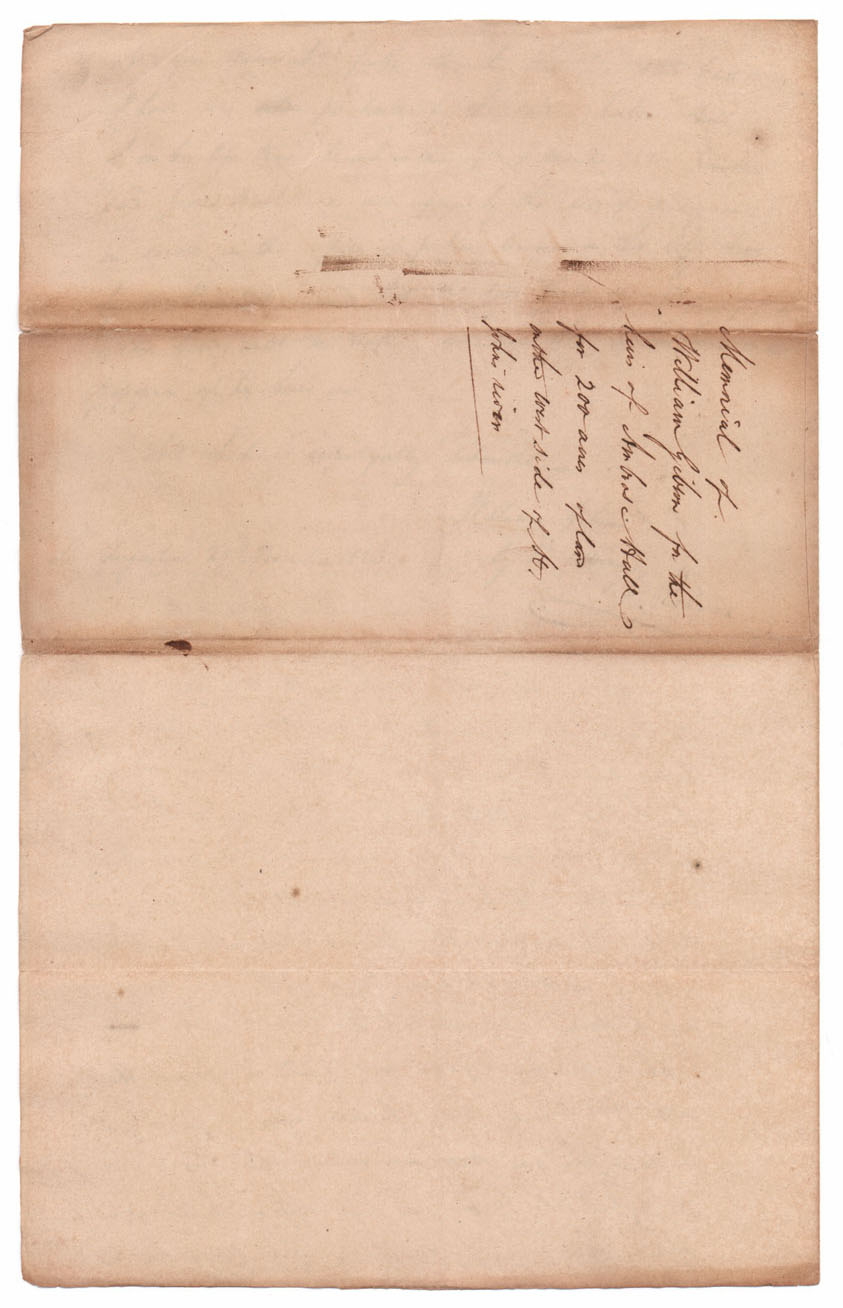 Memorial of
William Gibson for the
heirs of Ambrose Hull
for 200 acres of land
on the west side of St.
Johns river